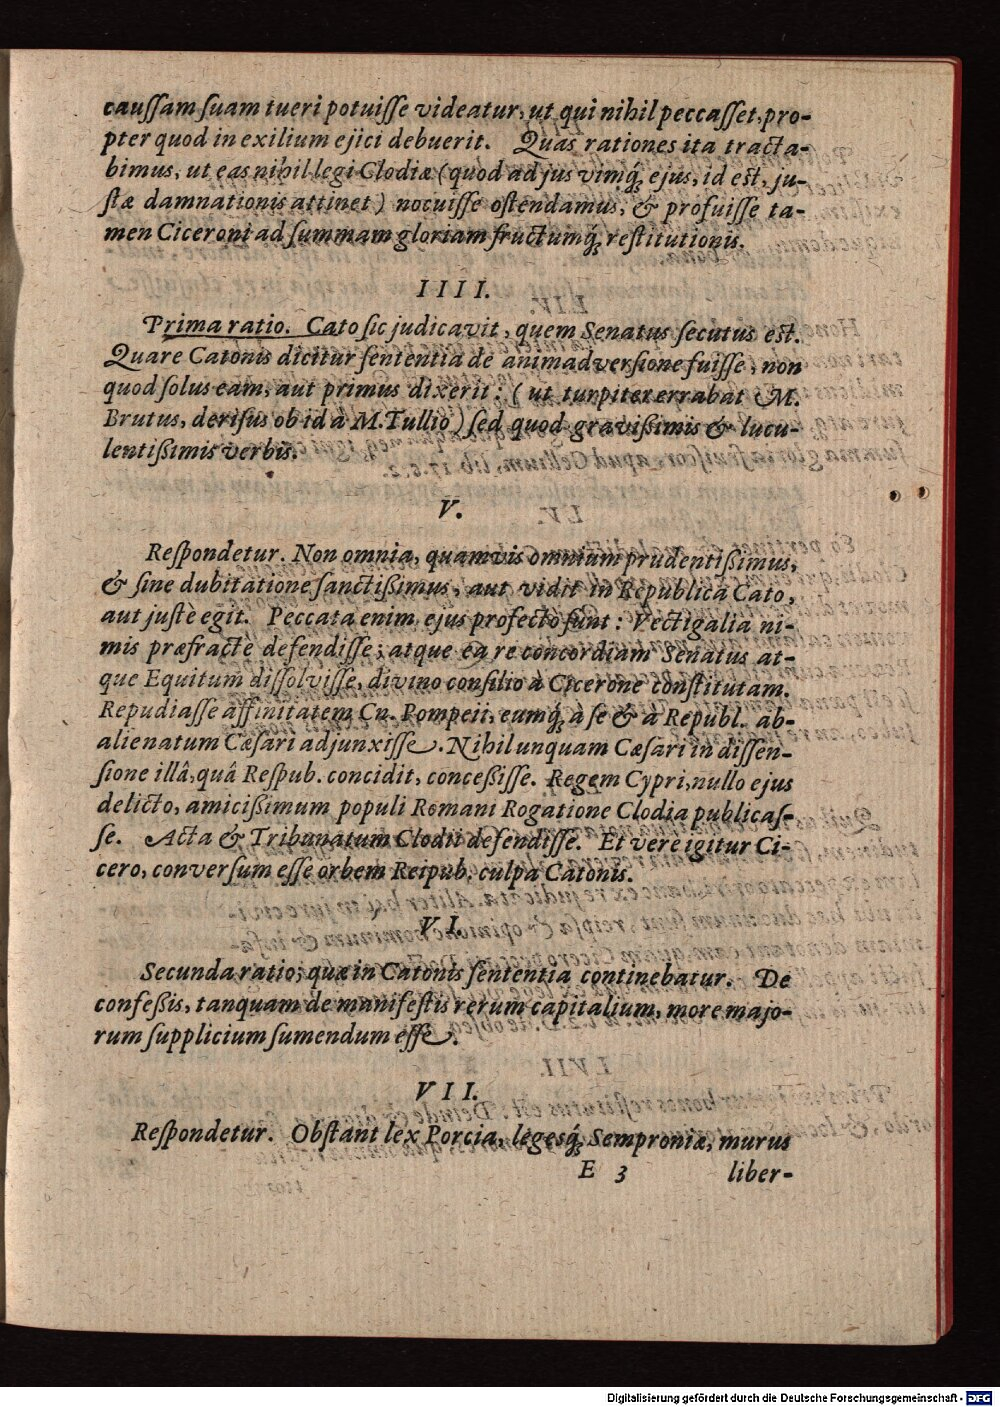 cauſſam ſuam tueri potuiſſe videatur, ut qui nihil peccaſſet, pro-
pter quod in exilium ejici debuerit. Quas rationes ita tracta-
bimus, ut eas nihil legi Clodiæ (quod ad jus vimq́; ejus, id est, ju-
ſtæ damnationis attinet) nocuiſſe oſtendamus, & profuiſſe ta-
men Ciceroni ad ſummam gloriam fructumq́; reſtitutionis.
IIII.
Prima ratio. Cato ſic judicavit, quem Senatus ſecutus eſt.
Quare Catonis dicitur ſententia de animadverſione fuiſſe, non
quod ſolus eam, aut primus dixerit: (ut turpiter errabat M.
Brutus, deriſus ob id à M. Tullio) ſed quod graviſſimis & lucu-
lentiſſimis verbis.
V.
Reſpondetur. Non omnia, quamvis omnium prudentiſſimus,
& ſine dubitatione ſanctiſſimus, aut vidit in Republica Cato,
aut juſtè egit. Peccata enim ejus profecto ſunt: Vectigalia ni-
mis præfractè defendiſſe; atque ea re concordiam Senatus at-
que Equitum diſſolviſſe, divino conſilio à Cicerone conſtitutam.
Repudiaſſe affinitatem Cn. Pompeii, eumq́; à ſe & à Republ. ab-
alienatum Cæſari adjunxiſſe. Nihil unquam Cæſari in diſſen-
ſione illâ, quâ Reſpub. concidit, conceſſiſſe. Regem Cypri, nullo ejus
delicto, amiciſſimum populi Romani Rogatione Clodia publicaſ-
ſe. Acta & Tribunatum Clodii defendiſſe. Et vere igitur Ci-
cero, converſum eſſe orbem Reipub. culpa Catonis.
VI.
Secunda ratio, quæ in Catonis ſententia continebatur. De
confeſſis, tanquam de manifeſtis rerum capitalium, more majo-
rum ſupplicium ſumendum eſſe.
VII.
Reſpondetur. Obſtant lex Porcia, legesq́; Semproniæ, murus
E 3 liber-
Digitalisierung gefördert durch die Deutsche Forschungsgemeinschaft - DFG